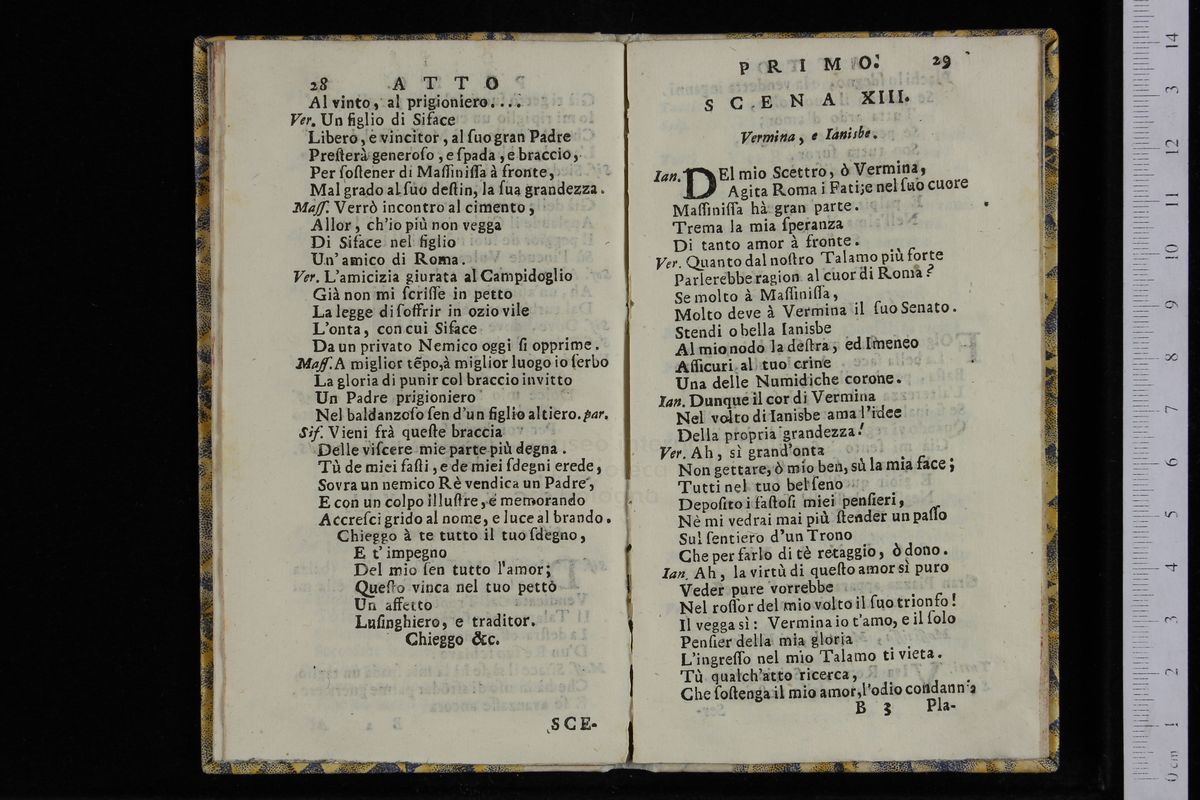 28 ATTO
Al vinto, al prigioniero....
Ver. Un figlio di Siface
Libero, e vincitor, al ſuo gran Padre
Preſterà generoſo, e ſpada, e braccio,
Per ſoſtener di Maſſiniſſa à fronte,
Mal grado al ſuo deſtin, la ſua grandezza.
Maſſ. Verrò incontro al cimento,
Allor, ch'io più non vegga
Di Siface nel figlio
Un' amico di Roma.
Ver. L'amicizia giurata al Campidoglio
Già non mi ſcriſſe in petto
La legge di ſoffrir in ozio vile
L'onta, con cui Siface
Da un privato Nemico oggi ſi opprime.
Maſſ. A miglior tẽpo, à miglior luogo io ſerbo
La gloria di punir col braccio invitto
Un Padre prigioniero
Nel baldanzoſo ſen d'un figlio altiero. par.
Sif. Vieni frà queſte braccia
Delle viſcere mie parte più degna.
Tù de miei faſti, e de miei ſdegni erede,
Sovra un nemico Rè vendica un Padre,
E con un colpo illuſtre, e memorando
Accreſci grido al nome, e luce al brando.
Chieggo à te tutto il tuo ſdegno,
E t' impegno
Del mio ſen tutto l'amor;
Queſto vinca nel tuo pettò
Un affetto
Luſinghiero, e traditor.
Chieggo &c.
SCE-
PRIMO. 29
SCENA XIII.
Vermina, e Ianisbe.
Ian. DEl mio Scettro, ò Vermina,
Agita Roma i Fati; e nel ſuo cuore
Maſſiniſſa hà gran parte.
Trema la mia ſperanza
Di tanto amor à fronte.
Ver. Quanto dal noſtro Talamo più forte
Parlerebbe ragion al cuor di Roma?
Se molto à Maſſiniſſa,
Molto deve à Vermina il ſuo Senato.
Stendi o bella Ianisbe
Al mio nodo la deſtra, ed Imeneo
Aſſicuri al tuo crine
Una delle Numidiche corone.
Ian. Dunque il cor di Vermina
Nel volto di Ianisbe ama l'idee
Della propria grandezza!
Ver. Ah, sì grand'onta
Non gettare, ò mio ben, sù la mia face;
Tutti nel tuo bel ſeno
Depoſito i faſtoſi miei penſieri,
Nè mi vedrai mai più ſtender un paſſo
Sul ſentiero d'un Trono
Che per farlo di tè retaggio, ò dono.
Ian. Ah, la virtù di queſto amor sì puro
Veder pure vorrebbe
Nel roſſor del mio volto il ſuo trionfo!
Il vegga sì: Vermina io t'amo, e il ſolo
Penſier della mia gloria
L'ingreſſo nel mio Talamo ti vieta.
Tù qualch'atto ricerca,
Che ſoſtenga il mio amor, l'odio condanna
B 3 Pla-